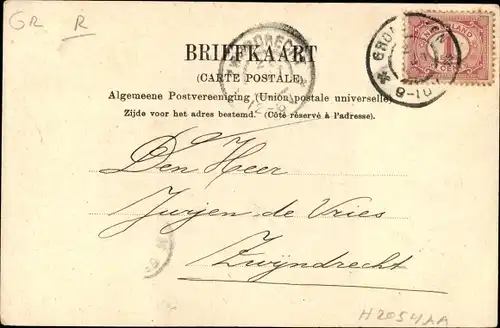 GR R
BRIEFKAART
(CARTE POSTALE)
Algemeene Postvereeniging (Union postale universelle)
Zijde voor het adres bestemd. (Côté réservé à l'adresse).
8-10
Den Heer
Jurjen de Vries
Zwijndrecht
H2054AA